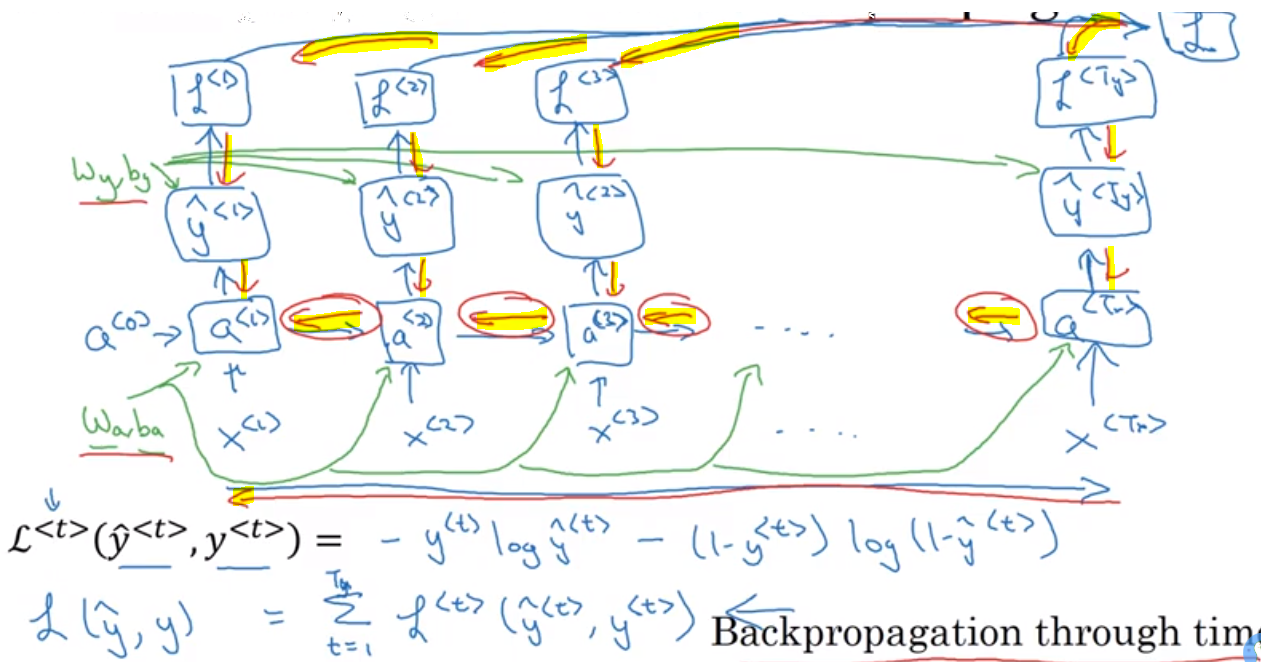 L
L<1> L<2> L<3> L<Ty>
Wy, by
ŷ<1> ŷ<2> ŷ<2> ŷ<Ty>
a<0> a<1> a<2> a<3> - - - - a<Tx>
Wa, ba
x<1> x<2> x<3> . . . . x<Tx>
ℒ<t>(ŷ<t>, y<t>) = - y<t> log ŷ<t> - (1-y<t>) log (1-ŷ<t>)
L(ŷ, y) = Σ t=1 Ty L<t>(ŷ<t>, y<t>) ←
Backpropagation through time